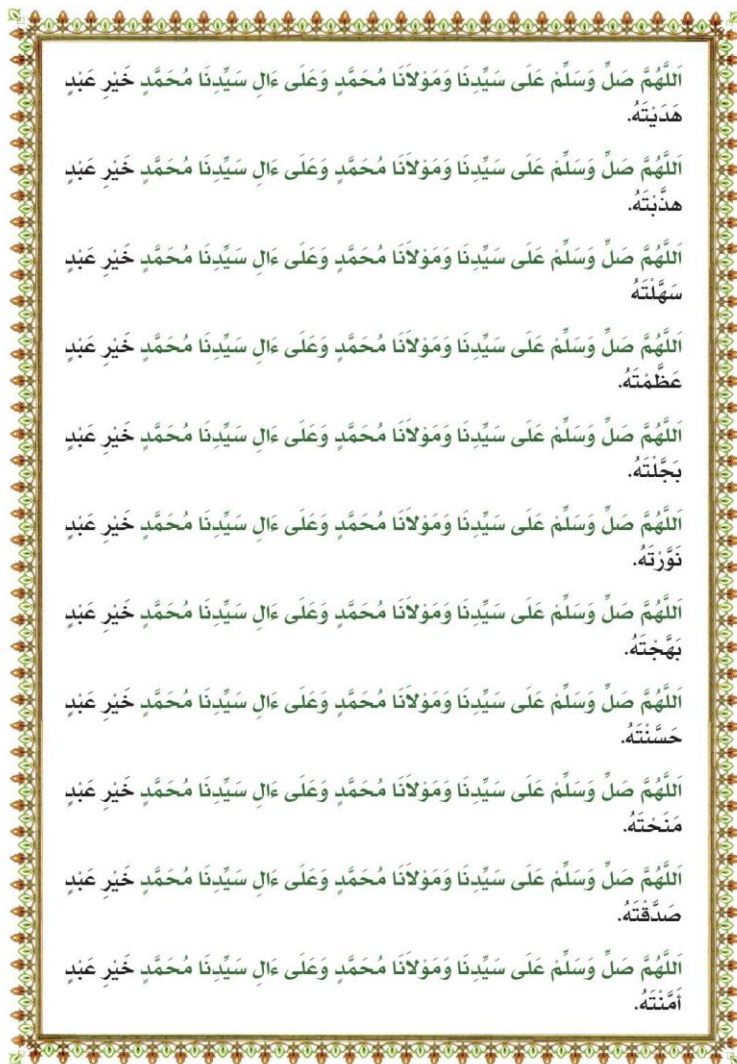 اَللَّهُمَّ صَلِّ وَسَلِّمْ عَلَى سَيِّدِنَا وَمَوْلاَنَا مُحَمَّدٍ وَعَلَى ءَالِ سَيِّدِنَا مُحَمَّدٍ خَيْرِ عَبْدٍ
هَدَيْتَهُ.
اَللَّهُمَّ صَلِّ وَسَلِّمْ عَلَى سَيِّدِنَا وَمَوْلاَنَا مُحَمَّدٍ وَعَلَى ءَالِ سَيِّدِنَا مُحَمَّدٍ خَيْرِ عَبْدٍ
هذَّبْتَهُ.
اَللَّهُمَّ صَلِّ وَسَلِّمْ عَلَى سَيِّدِنَا وَمَوْلاَنَا مُحَمَّدٍ وَعَلَى ءَالِ سَيِّدِنَا مُحَمَّدٍ خَيْرِ عَبْدٍ
سَهَّلْتَهُ
اَللَّهُمَّ صَلِّ وَسَلِّمْ عَلَى سَيِّدِنَا وَمَوْلاَنَا مُحَمَّدٍ وَعَلَى ءَالِ سَيِّدِنَا مُحَمَّدٍ خَيْرِ عَبْدٍ
عَظَّمْتَهُ.
اَللَّهُمَّ صَلِّ وَسَلِّمْ عَلَى سَيِّدِنَا وَمَوْلاَنَا مُحَمَّدٍ وَعَلَى ءَالِ سَيِّدِنَا مُحَمَّدٍ خَيْرِ عَبْدٍ
بَجَّلْتَهُ.
اَللَّهُمَّ صَلِّ وَسَلِّمْ عَلَى سَيِّدِنَا وَمَوْلاَنَا مُحَمَّدٍ وَعَلَى ءَالِ سَيِّدِنَا مُحَمَّدٍ خَيْرِ عَبْدٍ
نَوَّرْتَهُ.
اَللَّهُمَّ صَلِّ وَسَلِّمْ عَلَى سَيِّدِنَا وَمَوْلاَنَا مُحَمَّدٍ وَعَلَى ءَالِ سَيِّدِنَا مُحَمَّدٍ خَيْرِ عَبْدٍ
بَهَّجْتَهُ.
اَللَّهُمَّ صَلِّ وَسَلِّمْ عَلَى سَيِّدِنَا وَمَوْلاَنَا مُحَمَّدٍ وَعَلَى ءَالِ سَيِّدِنَا مُحَمَّدٍ خَيْرِ عَبْدٍ
حَسَّنْتَهُ.
اَللَّهُمَّ صَلِّ وَسَلِّمْ عَلَى سَيِّدِنَا وَمَوْلاَنَا مُحَمَّدٍ وَعَلَى ءَالِ سَيِّدِنَا مُحَمَّدٍ خَيْرِ عَبْدٍ
مَنَحْتَهُ.
اَللَّهُمَّ صَلِّ وَسَلِّمْ عَلَى سَيِّدِنَا وَمَوْلاَنَا مُحَمَّدٍ وَعَلَى ءَالِ سَيِّدِنَا مُحَمَّدٍ خَيْرِ عَبْدٍ
صَدَّقْتَهُ.
اَللَّهُمَّ صَلِّ وَسَلِّمْ عَلَى سَيِّدِنَا وَمَوْلاَنَا مُحَمَّدٍ وَعَلَى ءَالِ سَيِّدِنَا مُحَمَّدٍ خَيْرِ عَبْدٍ
أَمَّنْتَهُ.